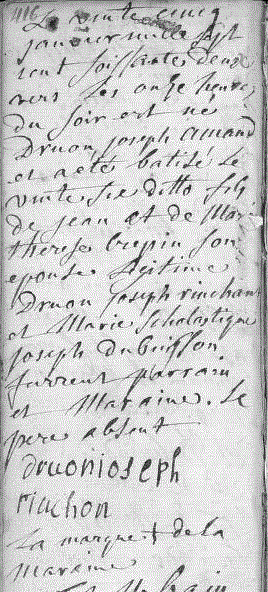 1116
Le vinte cinq
janvier mille sept
cent soissante deux
vers les onze heures
du soir est né
Druon joseph amand
et a eté batisé le
vinte sie ditto fils
de jean et de Mari
therese Crepin son
epouse legitime
Druon joseph rinchon
et Marie Scholastique
joseph Dubuisson
furrent parrain
et Maraine. Le
pere absent
druonioseph
rinchon
La marque + de la
Maraine